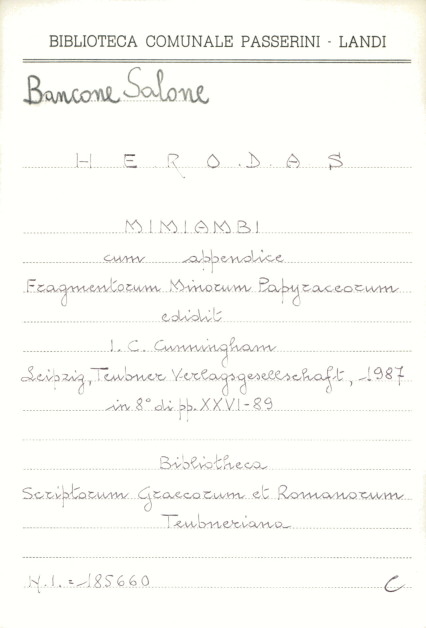 BIBLIOTECA COMUNALE PASSERINI - LANDI
Bancone Salone
HERODAS
MIMIAMBI
cum appendice
Fragmentorum Minorum Papyraceorum
edidit
I. C. Cunningham
Leipzig, Teubner Verlagsgesellschaft, 1987
in 8° di pp. XXVI-89
Bibliotheca
Scriptorum Graecorum et Romanorum
Teubneriana
N.I. = 185660 C